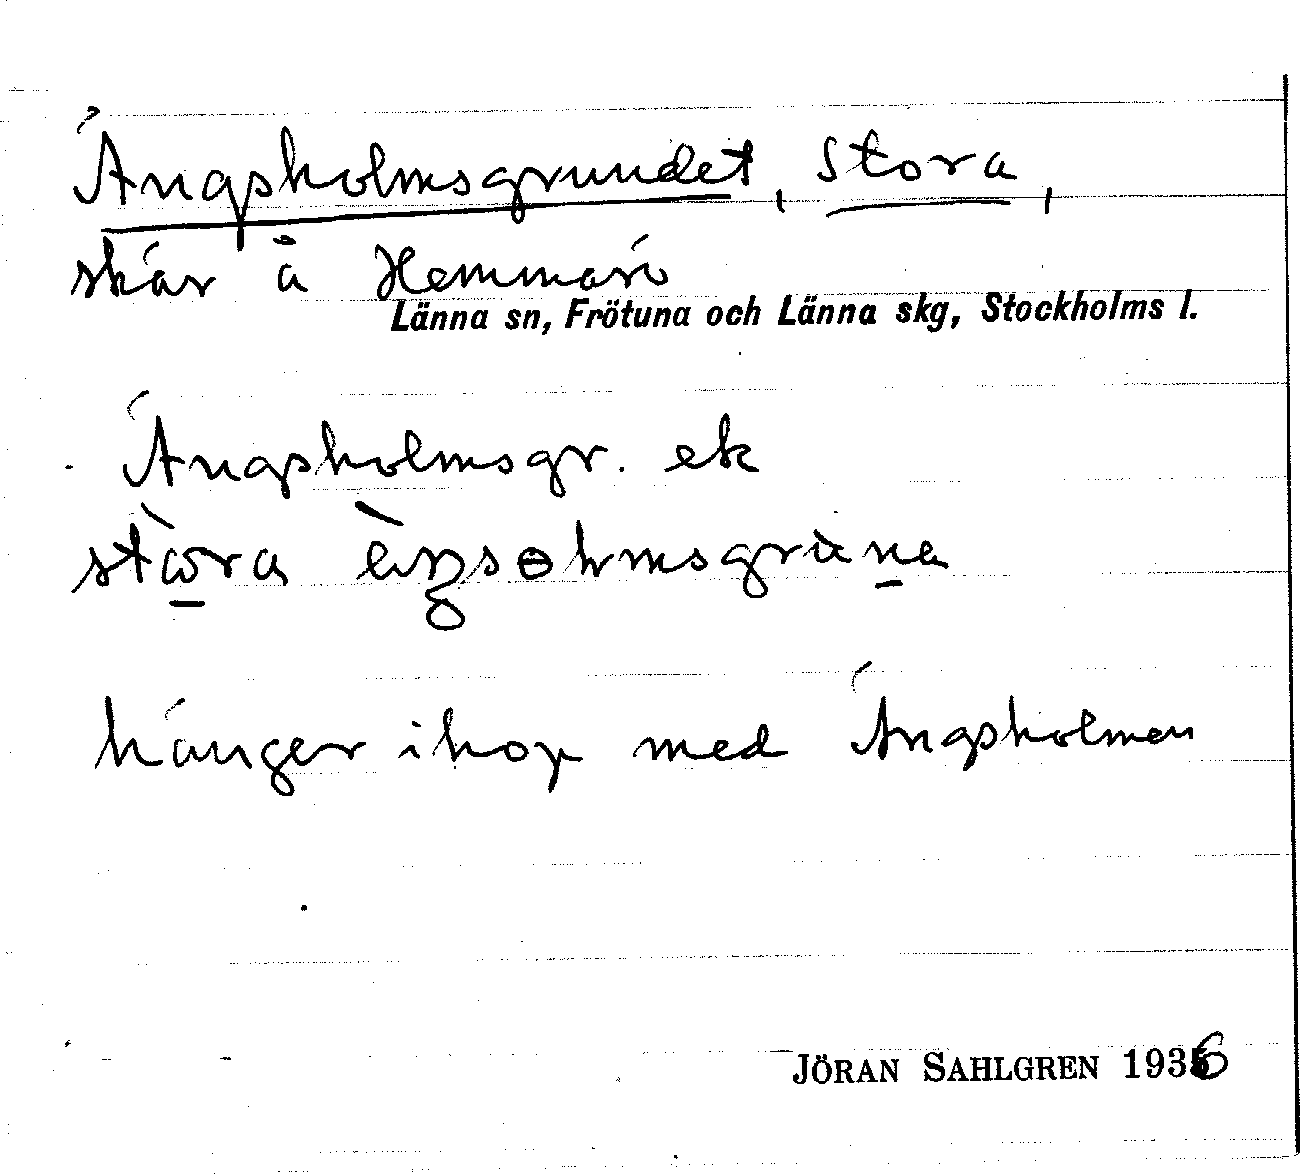 Ängsholmsgrundet, Stora,
skär å Hemmarö
Länna sn, Frötuna och Länna skg, Stockholms l.
Ängsholmsgr. ek
hänger ihop med Ängsholmen
JÖRAN SAHLGREN 1936